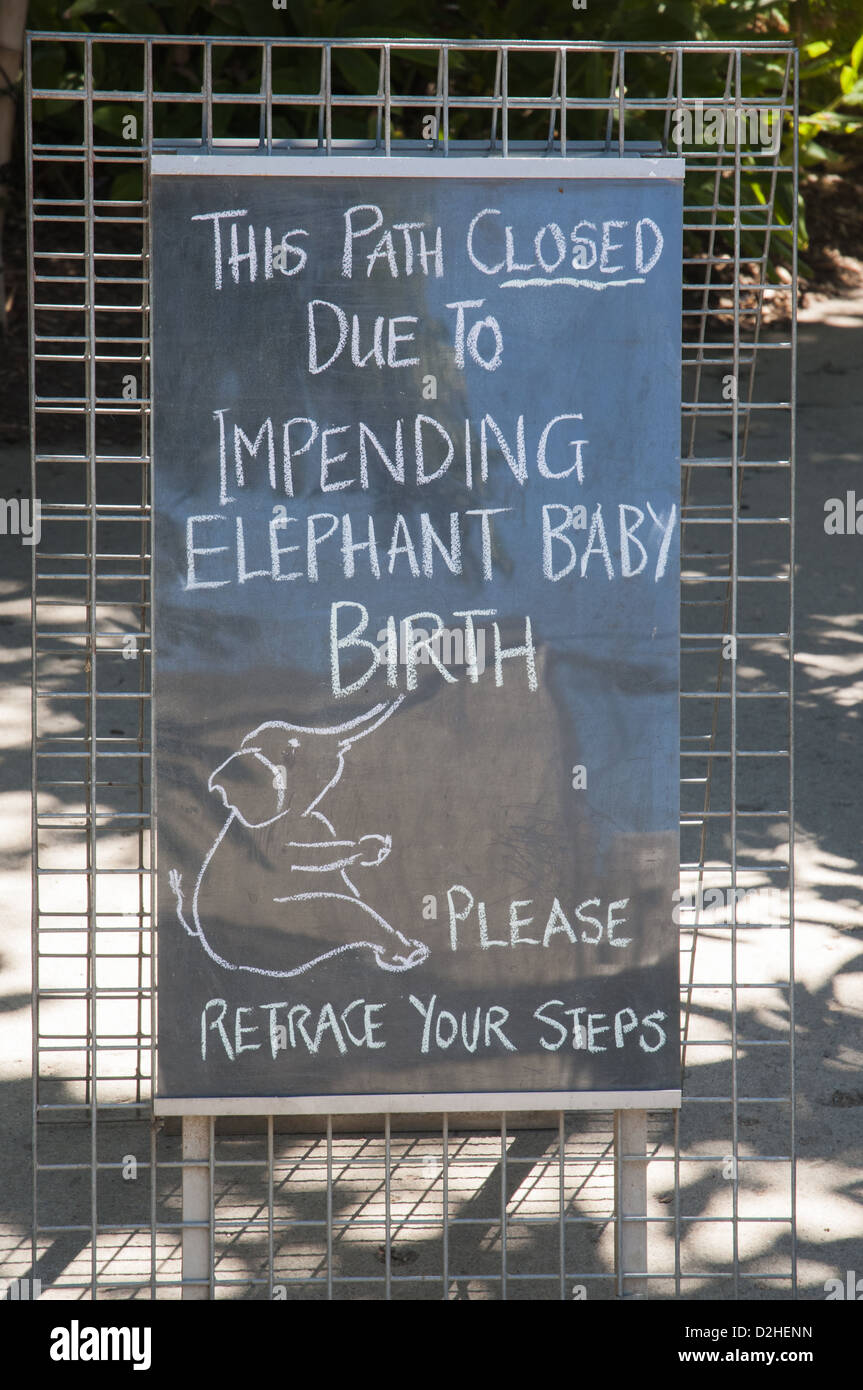 THIS PATH CLOSED
DUE TO
IMPENDING
ELEPHANT BABY
BIRTH
PLEASE
RETRACE YOUR STEPS
alamy
Image ID: D2HENN
www.alamy.com